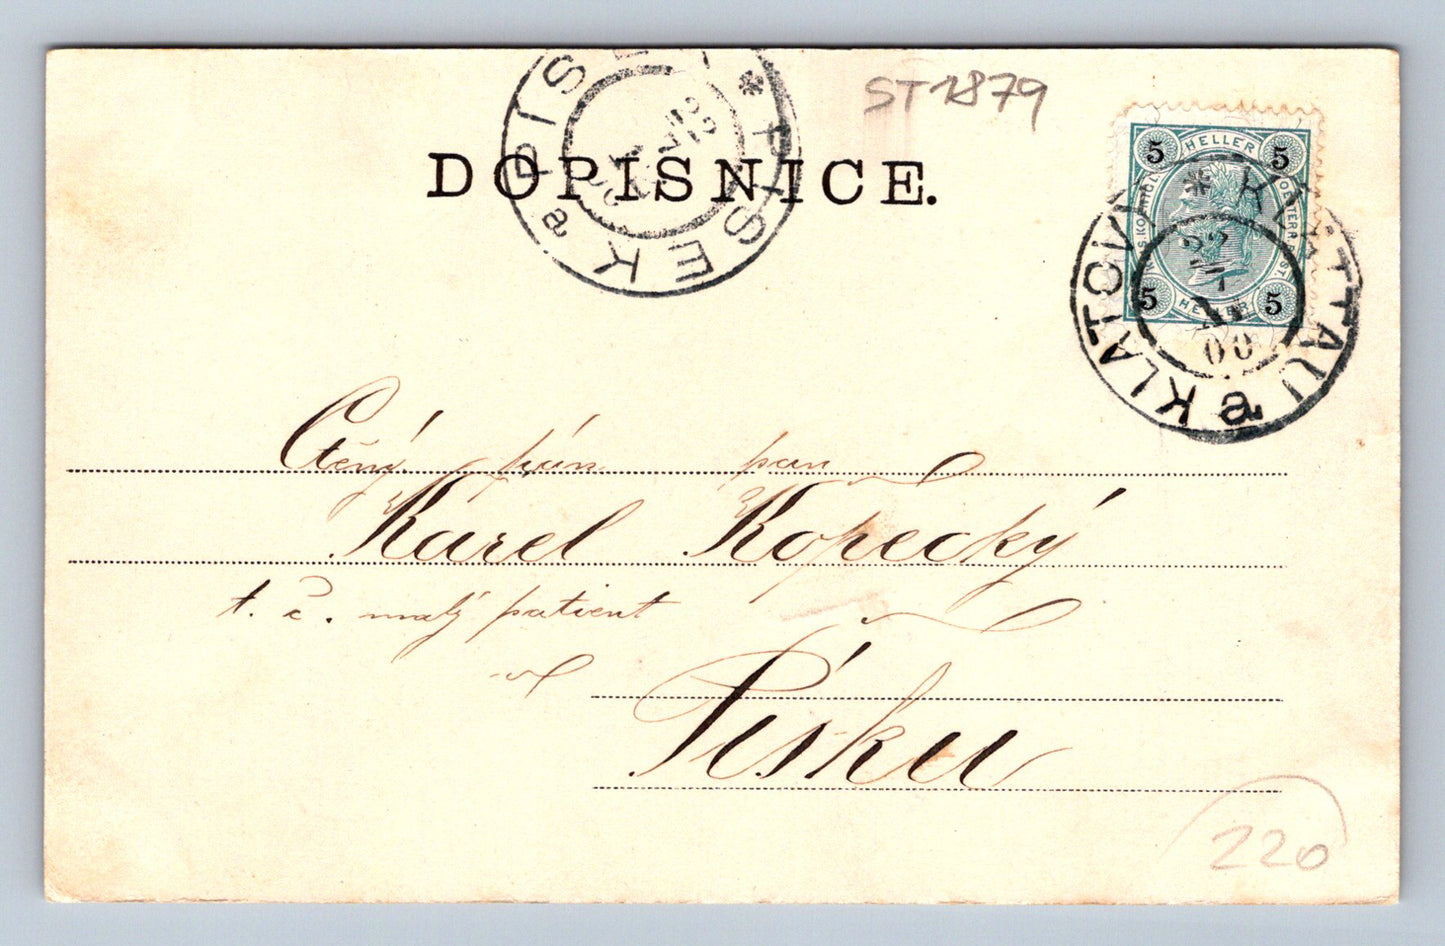 PÍSEK * PISEK a
ST 1879
DOPISNICE.
5 HELLER 5
5 HELLER 5
KLATOVY * KLATTAU a
00
Ctěný pán pan
Karel Kopecký
t. č. malý patient
v
Písku
220